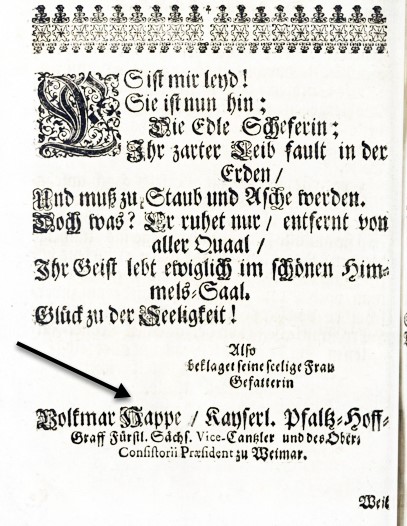 ES ist mir leyd!
Sie ist nun hin;
Die Edle Scheferin;
Ihr zarter Leib fault in der
Erden /
Und muß zu Staub und Asche werden.
Doch was? Er ruhet nur / entfernt von
aller Quaal /
Ihr Geist lebt ewiglich im schönen Him-
mels-Saal.
Glück zu der Seeligkeit!
Also
beklaget seine seelige Frau
Gefatterin
Volkmar Happe / Kayserl. Pfaltz-Hoff-
Graff Fürstl. Sächs. Vice-Cantzler und des Ober-
Consistorii Præsident zu Weimar.
Weil